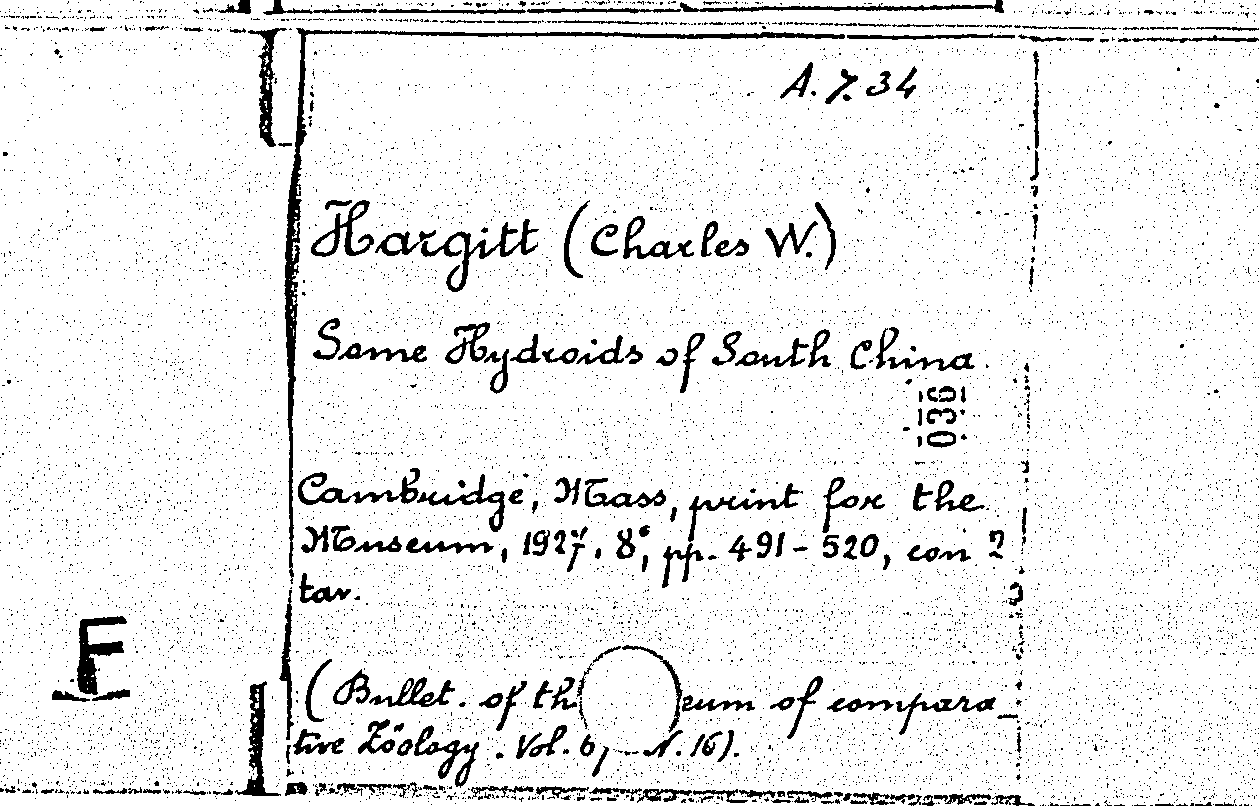 A. 7. 34
Hargitt (Charles W.)
Some Hydroids of South China
036
Cambridge, Mass, print for the
Museum, 1927. 8°, pp. 491-520, con 2
tav.
F
(Bullet. of th eum of compara_
tive Zöology. Vol. 6, N. 16).